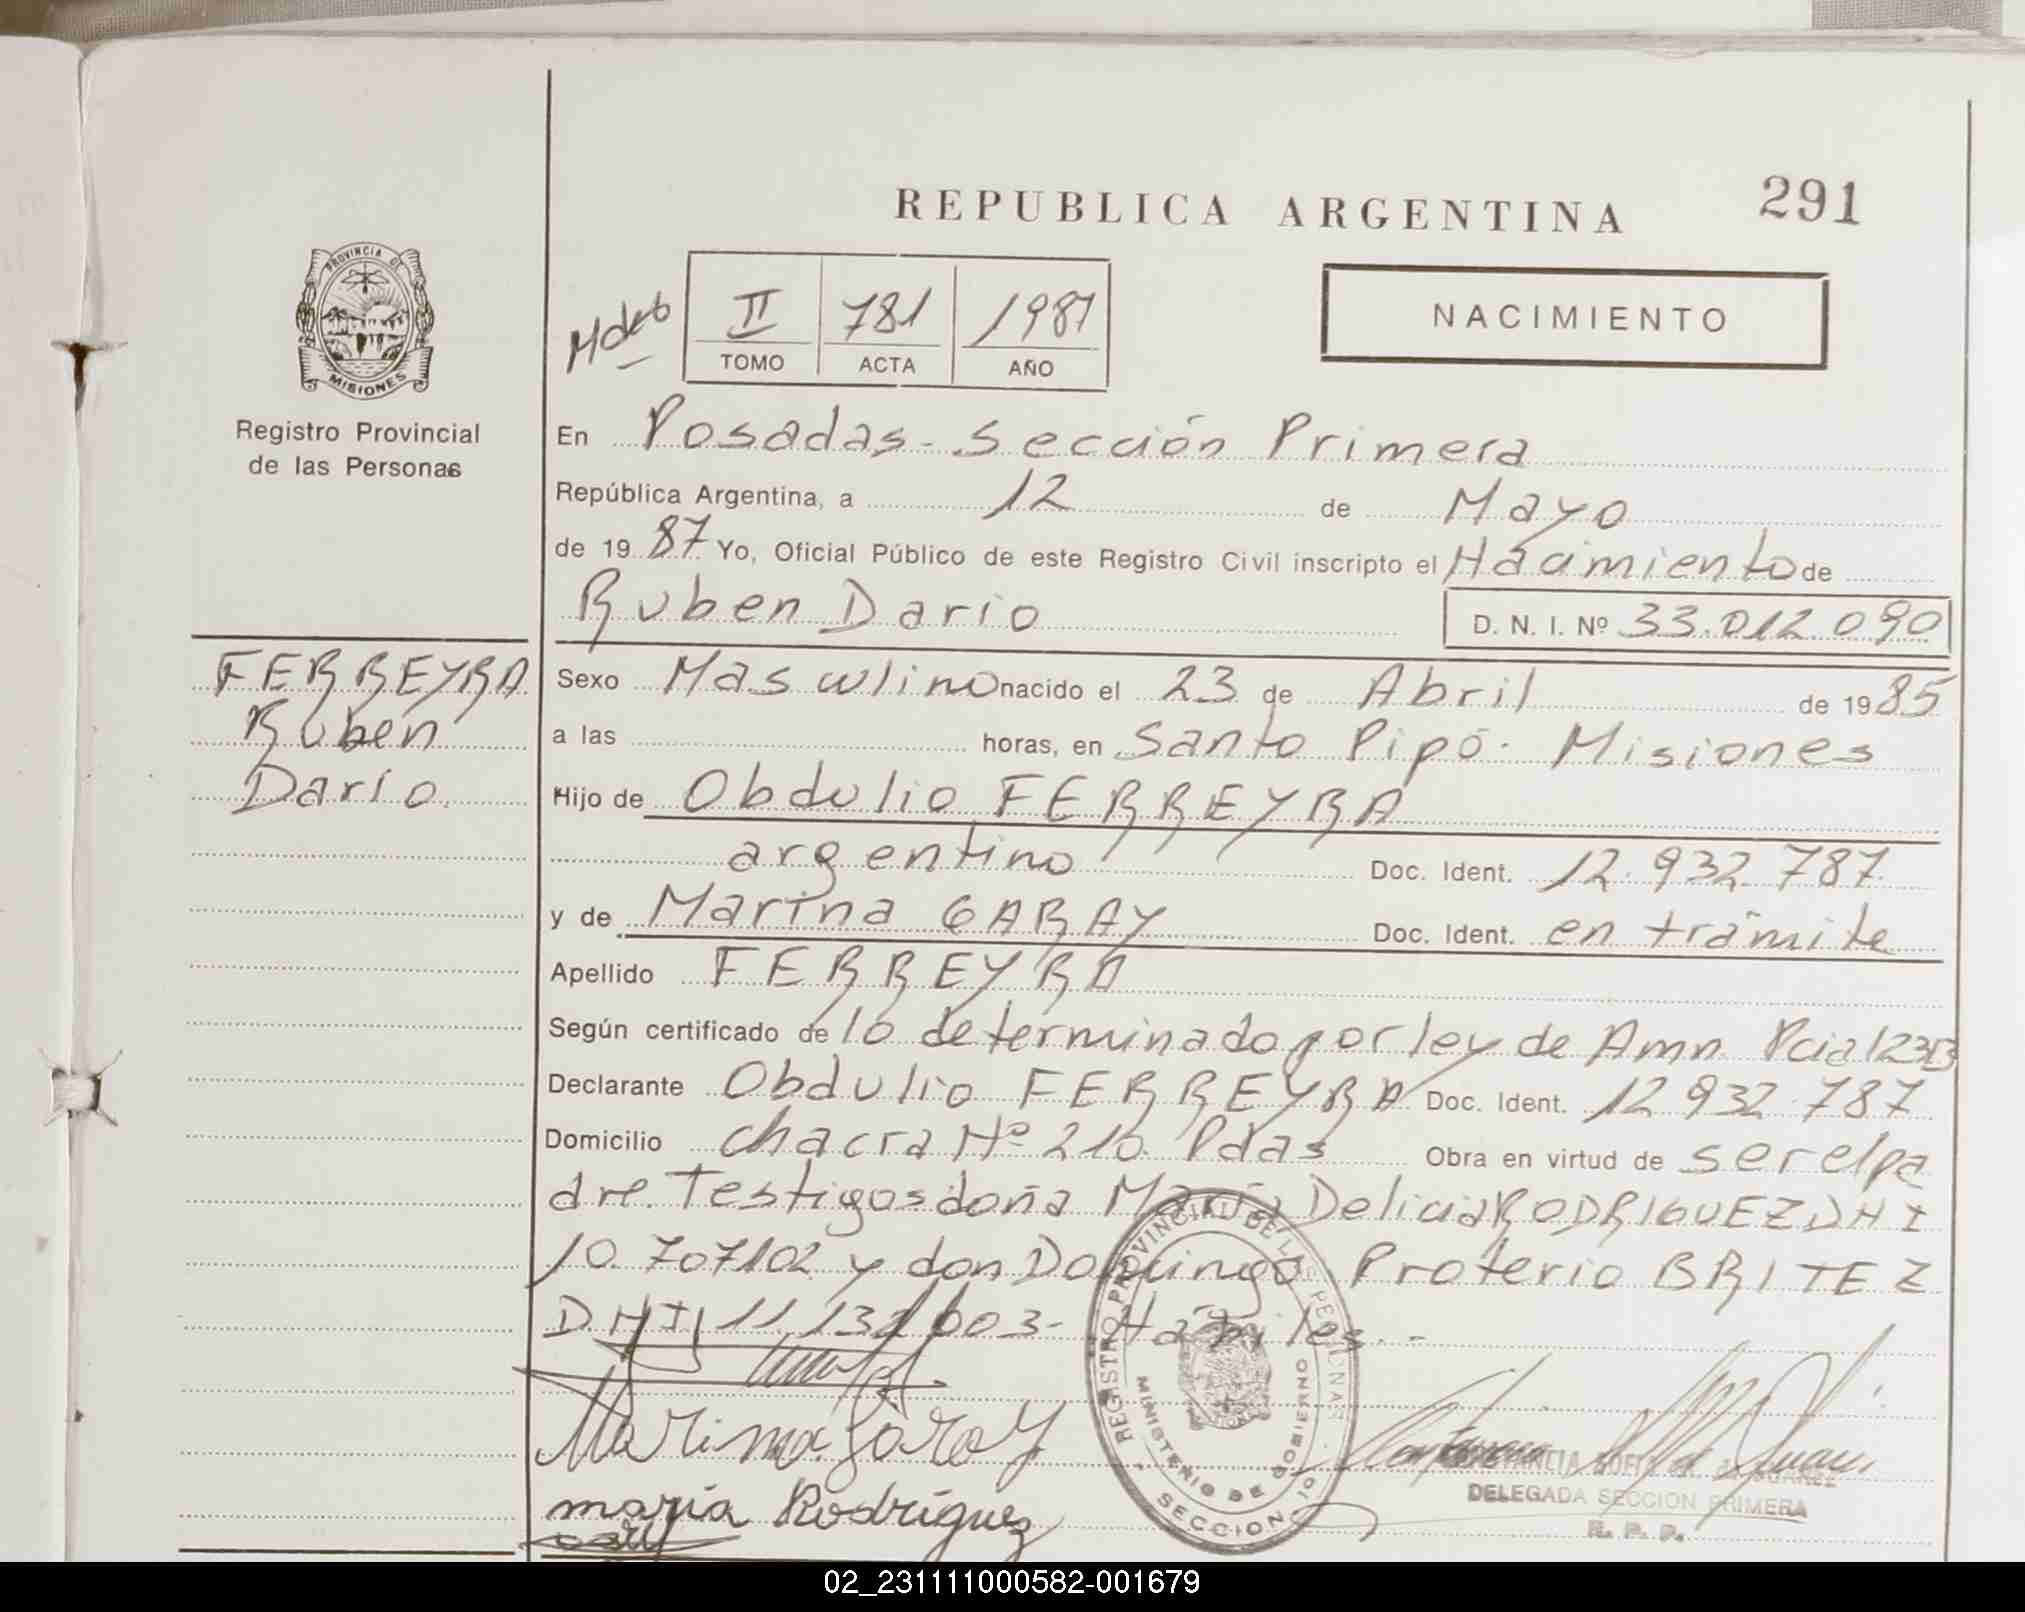 REPUBLICA ARGENTINA
291
PROVINCIA DE
MISIONES
Registro Provincial
de las Personas
II 781 1987
TOMO ACTA AÑO
NACIMIENTO
En Posadas - Sección Primera
República Argentina, a 12 de Mayo
de 1987 Yo, Oficial Público de este Registro Civil inscripto el Nacimiento de
Ruben Dario D. N. I. Nº 33.012.090
FERREYRA
Ruben
Dario.
Sexo Masculino nacido el 23 de Abril de 1985
a las horas, en Santo Pipó - Misiones
Hijo de Obdulio FERREYRA
argentino Doc. Ident. 12.932.787
y de Marina GARAY Doc. Ident. en trámite
Apellido FERREYRA
Según certificado de lo determinado por ley de Amn. Pcial
Declarante Obdulio FERREYRA Doc. Ident. 12.932.787
Domicilio chacra Nº 210. Pdas Obra en virtud de ser el pa
dre. Testigos doña María Delicia RODRIGUEZ DNI
10.707102 y don Domingo Proterio BRITEZ
DNI 11.131.003 - Hábiles. -
Marina Garay
maria Rodriguez
REGISTRO PROVINCIAL DE LAS PERSONAS
MINISTERIO DE GOBIERNO
SECCION 1o
DELEGADA SECCION PRIMERA
R. P. P.
02_231111000582-001679